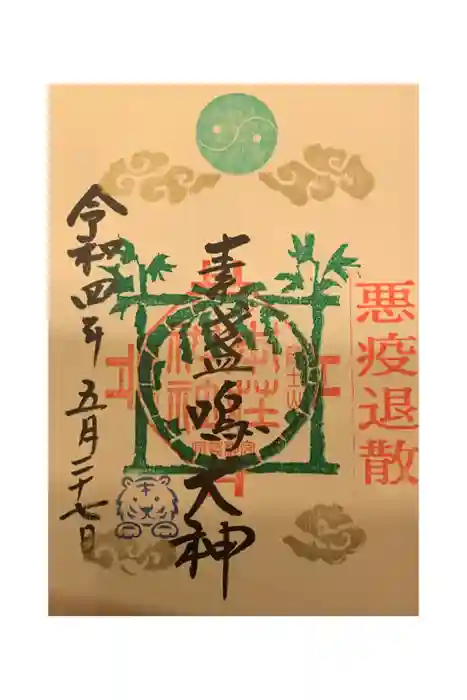 悪疫退散
素盞嗚大神
令和四年 五月二十七日